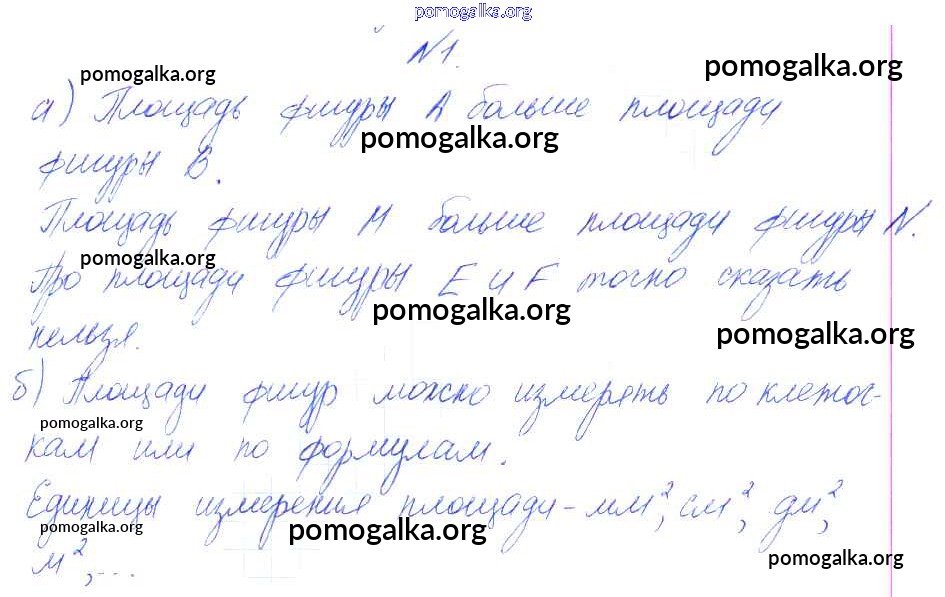 pomogalka.org
№1.
pomogalka.org
pomogalka.org
а) Площадь фигуры А больше площади
pomogalka.org
фигуры В.
Площадь фигуры М больше площади фигуры N.
pomogalka.org
Про площади фигуры Е и F точно сказать
pomogalka.org
pomogalka.org
нельзя.
б) Площади фигур можно измерять по клеточ-
pomogalka.org
кам или по формулам.
Единицы измерения площади - мм², см², дм²,
pomogalka.org
pomogalka.org
м²,...
pomogalka.org